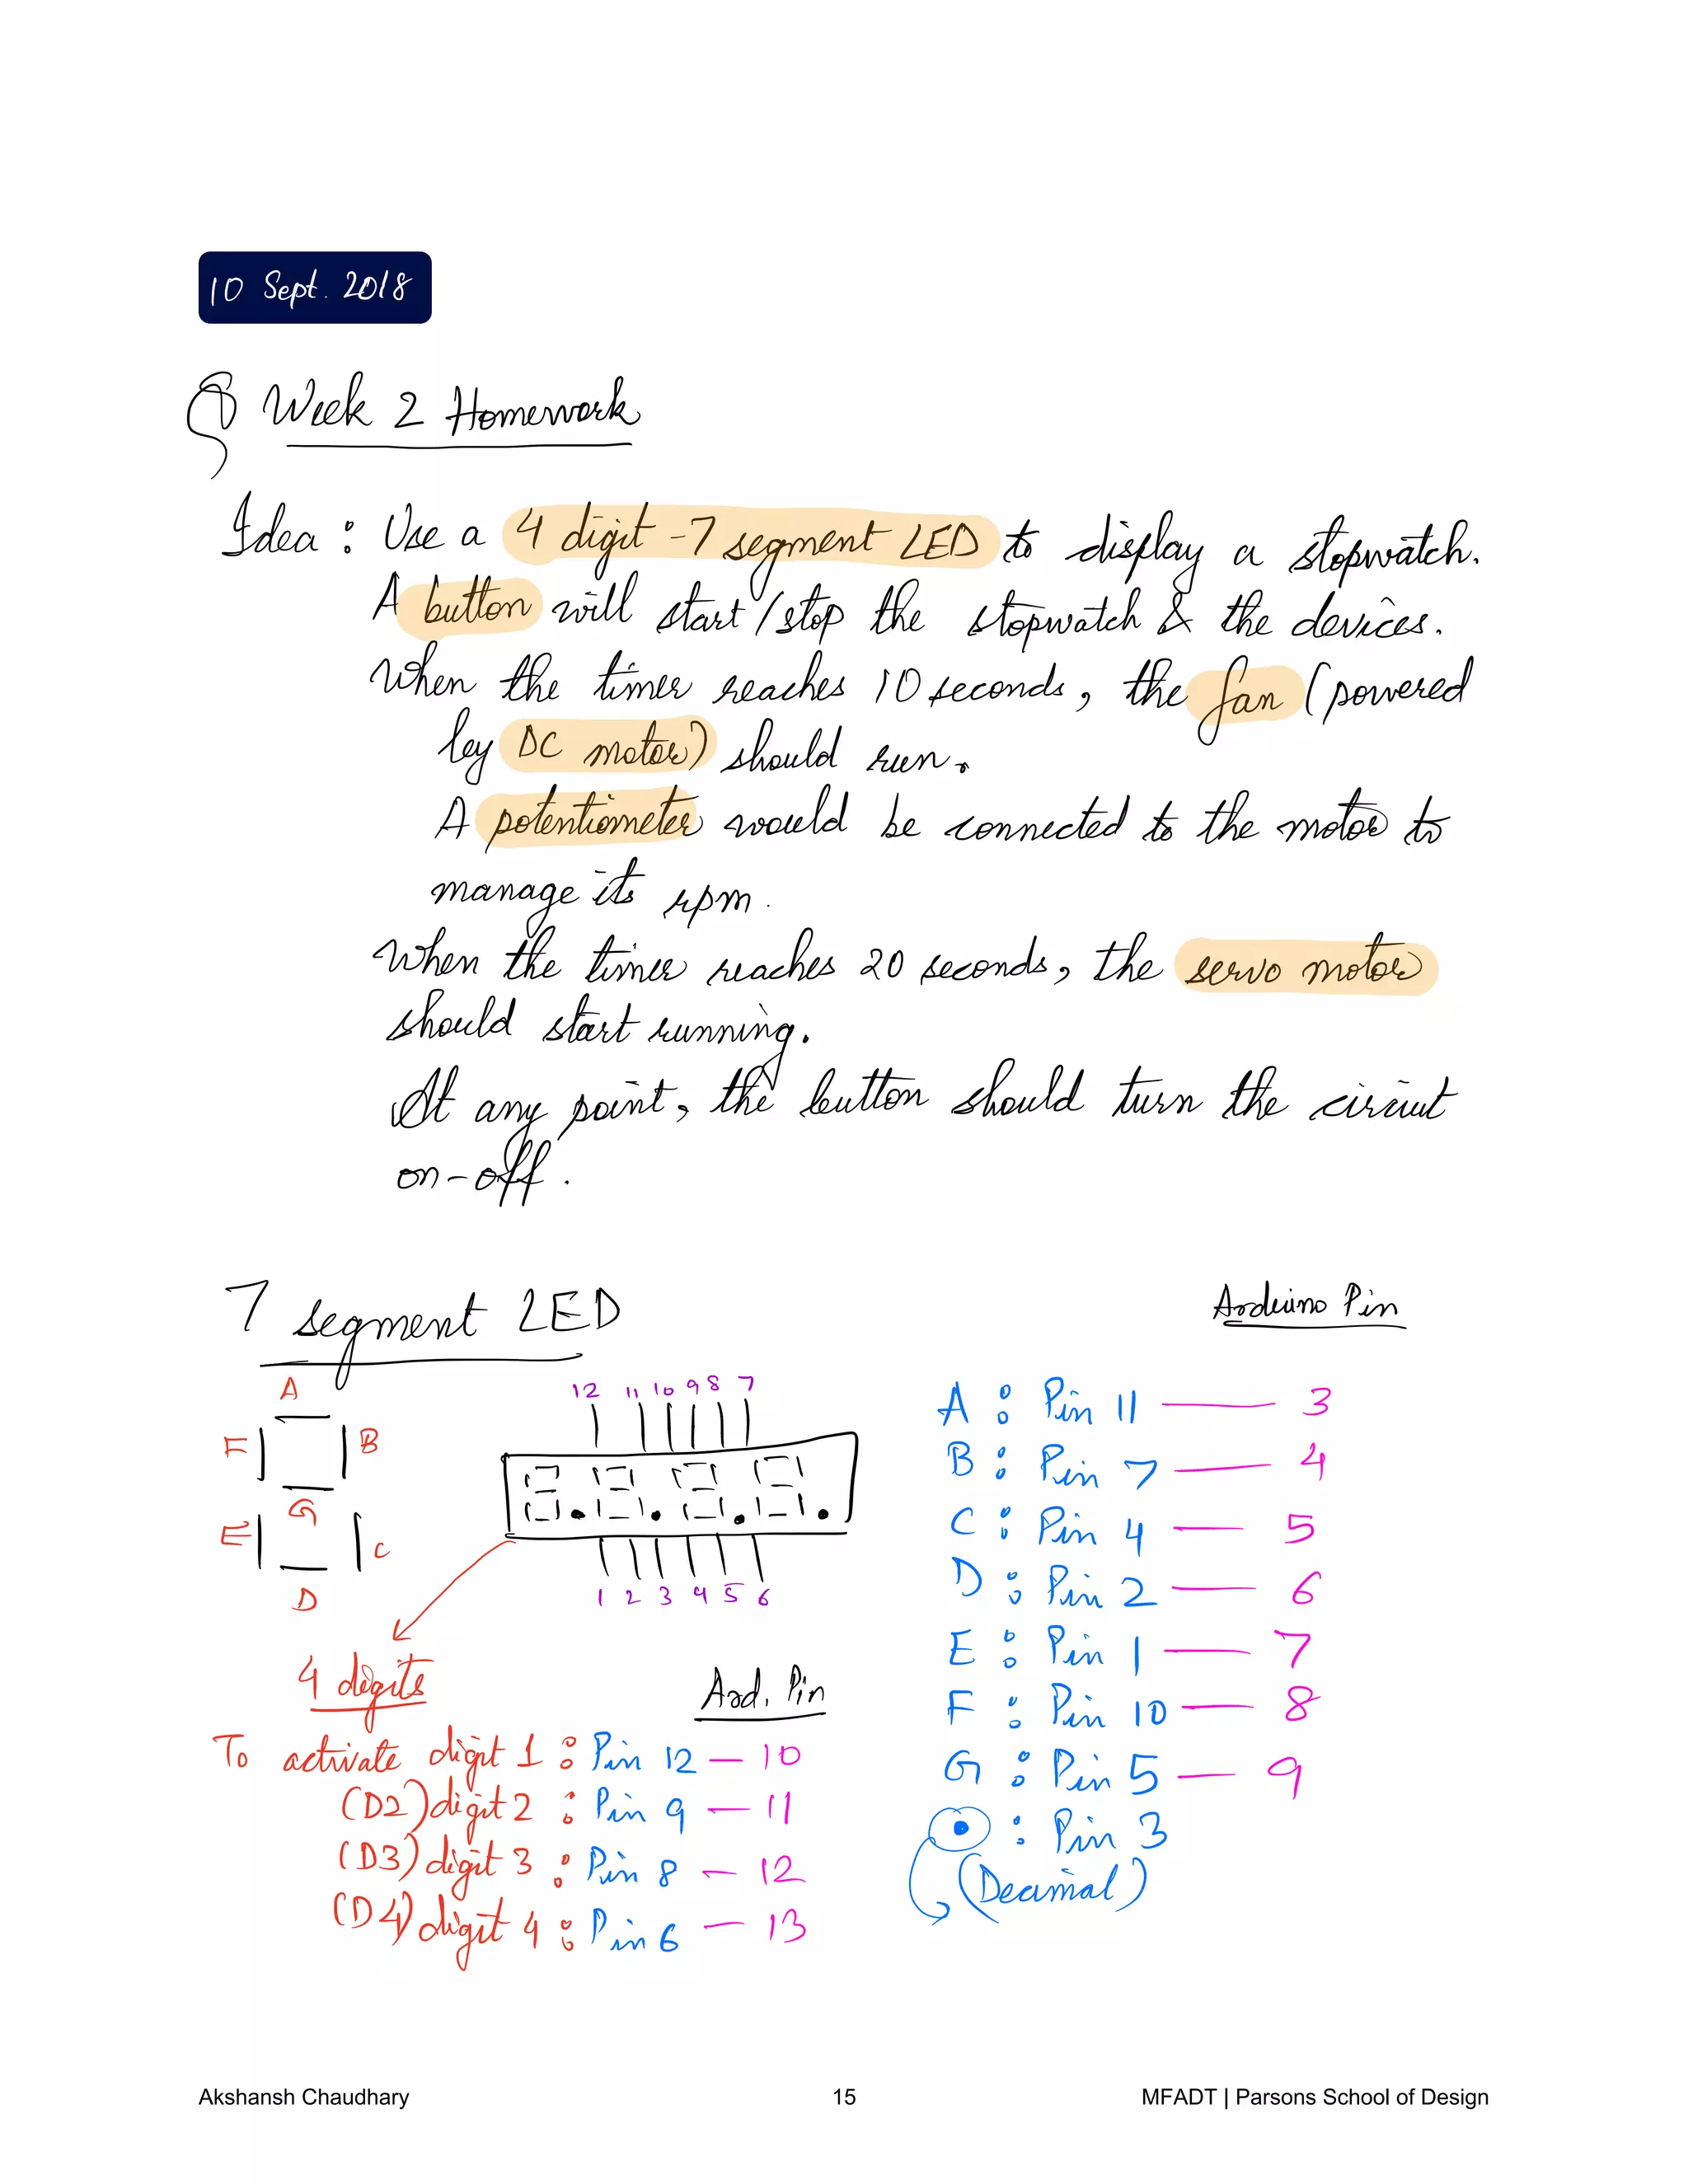 10 Sept. 2018
Week 2 Homework
Idea : Use a 4 digit - 7 segment LED to display a stopwatch.
A button will start/stop the stopwatch & the devices.
When the timer reaches 10 seconds, the fan (powered
by DC motor) should run.
A potentiometer would be connected to the motor to
manage its rpm.
When the timer reaches 20 seconds, the servo motor
should start running.
At any point, the button should turn the circuit
on-off.
7 segment LED
Arduino Pin
A
F B
G
E C
D
12 11 10 9 8 7
1 2 3 4 5 6
A : Pin 11 — 3
B : Pin 7 — 4
C : Pin 4 — 5
D : Pin 2 — 6
E : Pin 1 — 7
F : Pin 10 — 8
G : Pin 5 — 9
• : Pin 3
(Decimal)
4 digits
Ard. Pin
To activate digit 1 : Pin 12 — 10
(D2) digit 2 : Pin 9 — 11
(D3) digit 3 : Pin 8 — 12
(D4) digit 4 : Pin 6 — 13
Akshansh Chaudhary 15 MFADT | Parsons School of Design